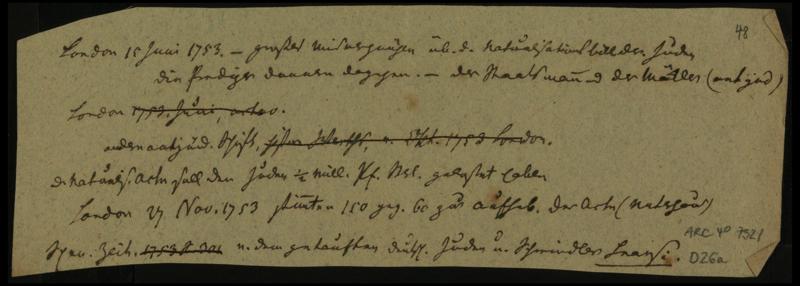 48
London 15 Juni 1753. – großes Mißvergnügen üb. d. Naturalisationsbill der Juden
die Prediger donnern dagegen. – der Staatsmañ u der Mäkler (antijüd)
London 1753. Juni,
andere antijüd. Schift, 1753 London.
d. Naturalis. Acte soll den Juden ½ Mill. Pf. Strl. gekostet haben
London 27 Nov. 1753 stim̃ten 150 geg. 60 für Aufheb. der Acte
Span. Zeit. 1753 u. dem getauften dtsch. Juden u. Schwindler
ARC 4° 7321
D26a